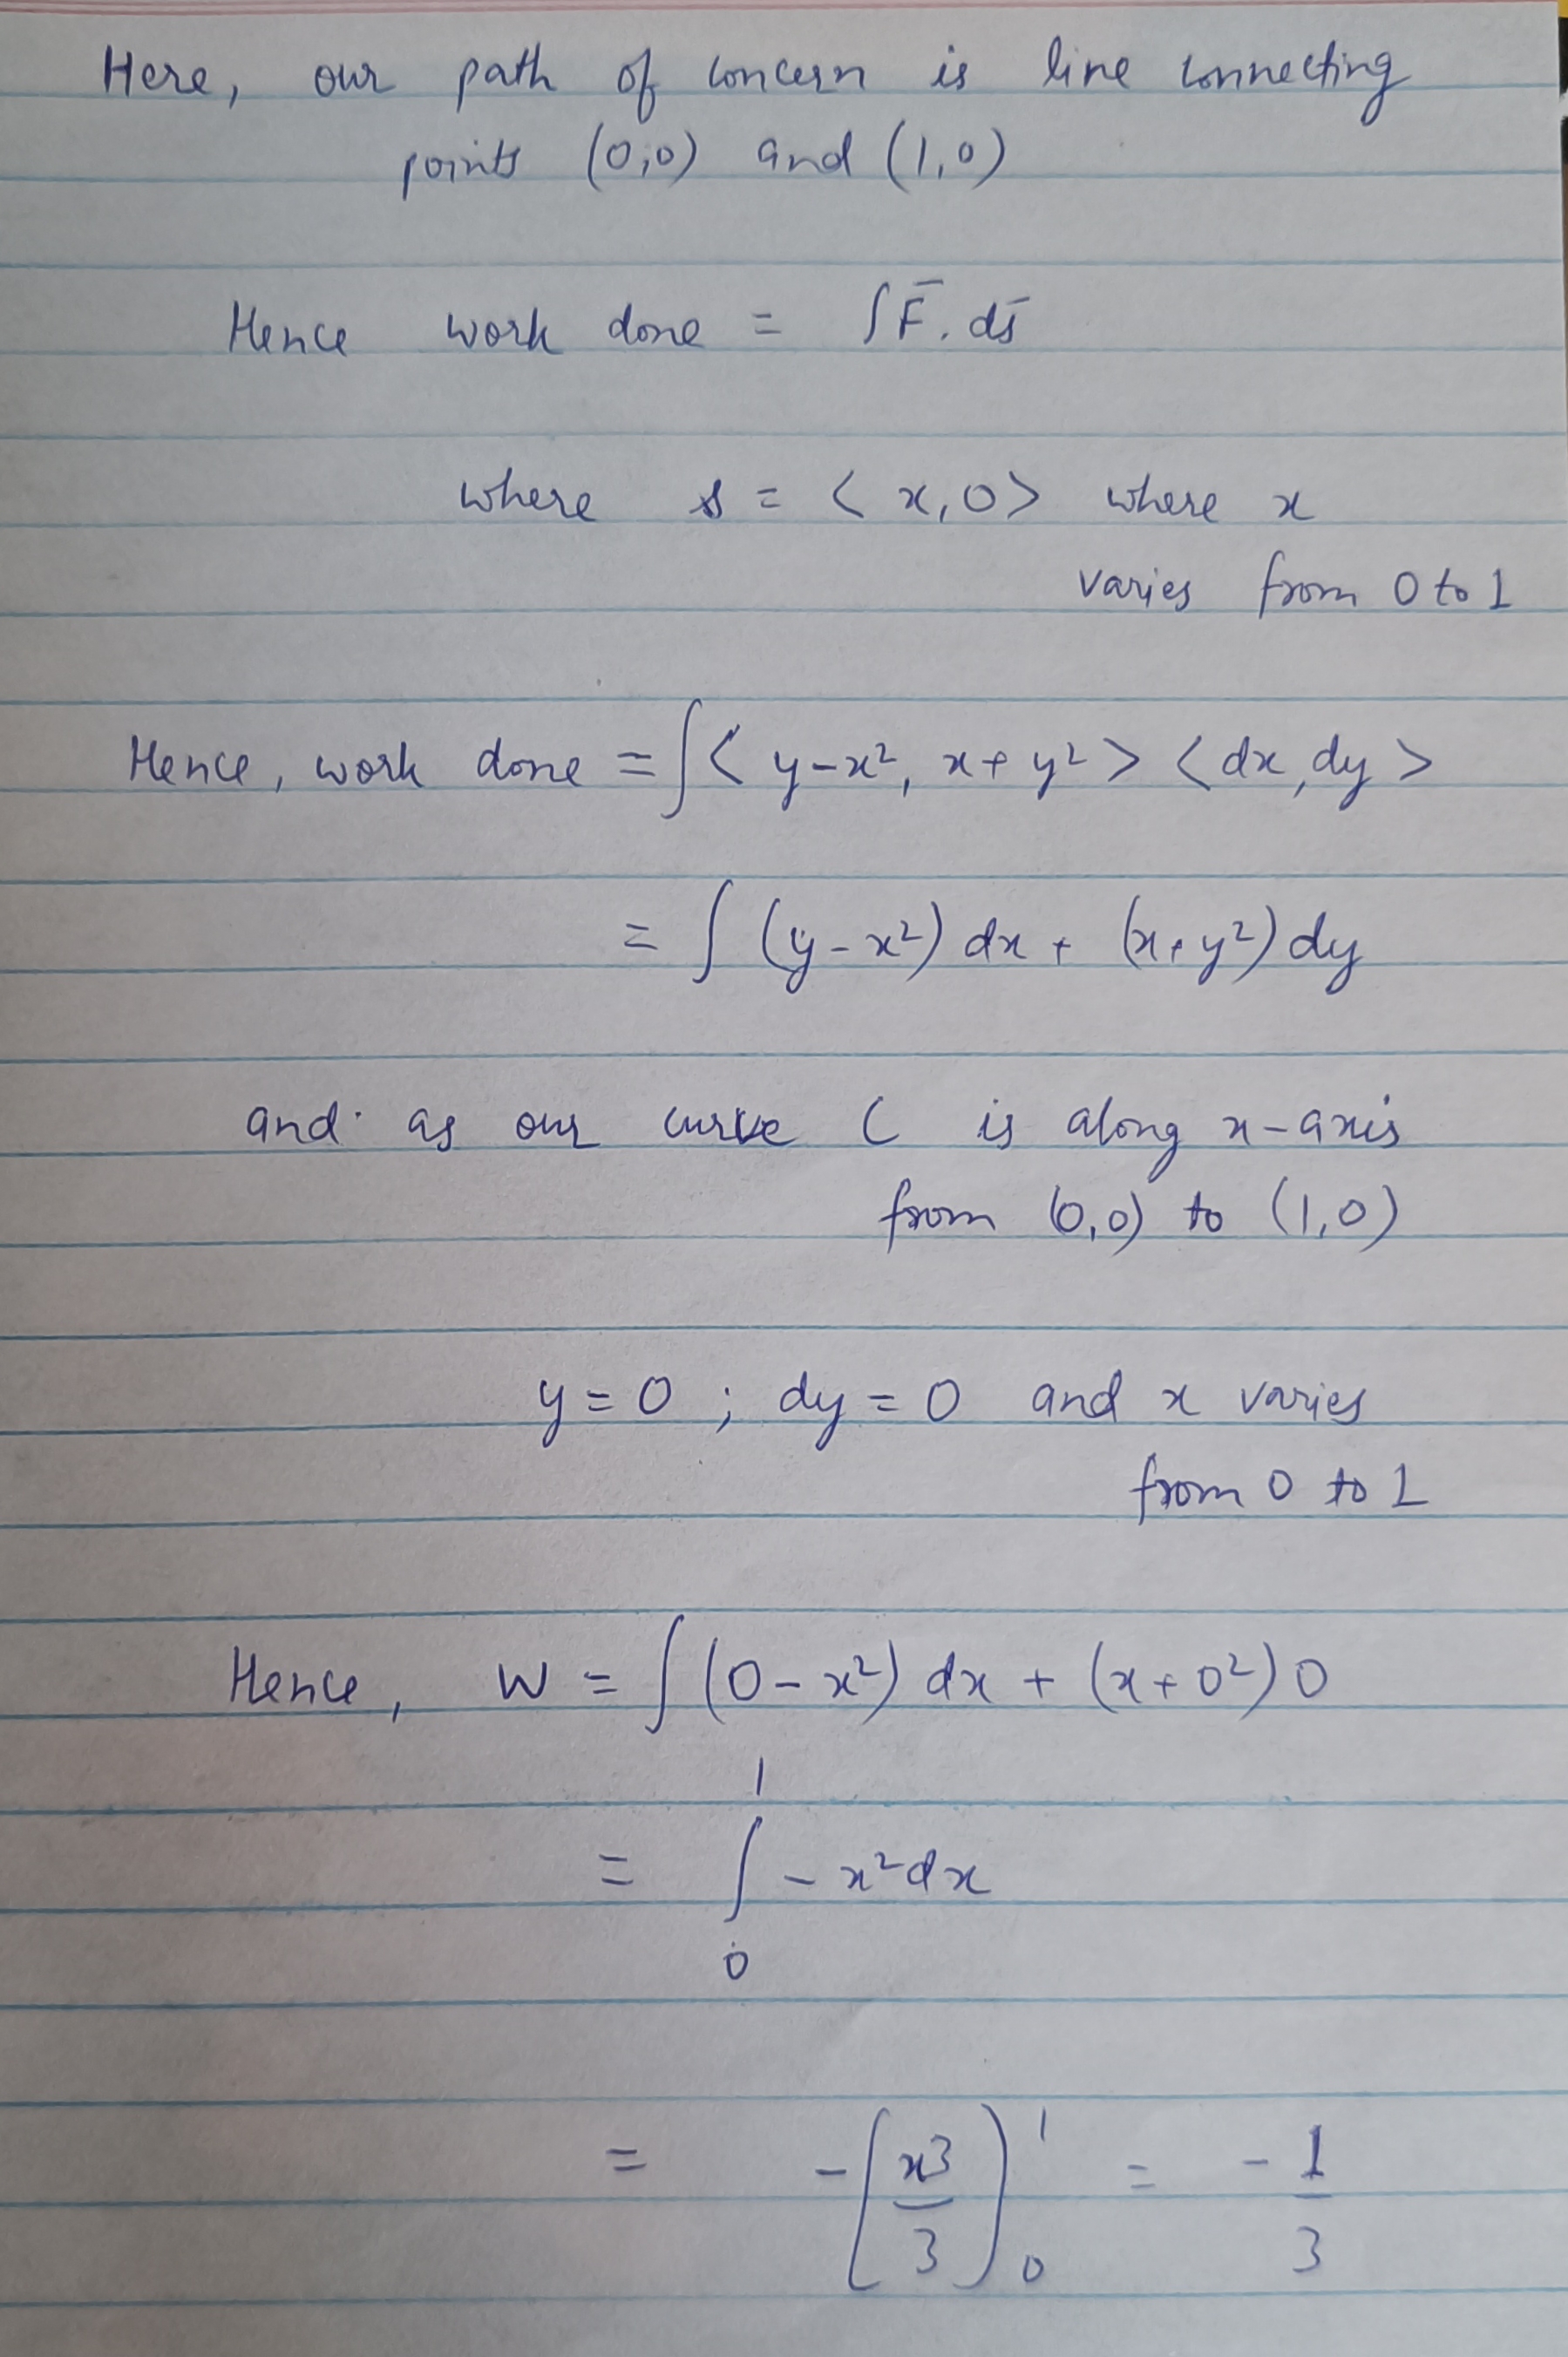 Here, our path of concern is line connecting
points (0,0) and (1,0)
Hence work done = ∫F̄. ds̄
where s = < x, 0> where x
varies from 0 to 1
Hence, work done = ∫< y-x², x+y² > < dx, dy >
= ∫ (y-x²) dx + (x+y²) dy
and as our curve C is along x-axis
from (0,0) to (1,0)
y = 0 ; dy = 0 and x varies
from 0 to 1
Hence, W = ∫(0-x²) dx + (x+0²) 0
= ∫₀¹ -x² dx
= -[x³/3]₀¹ = -1/3